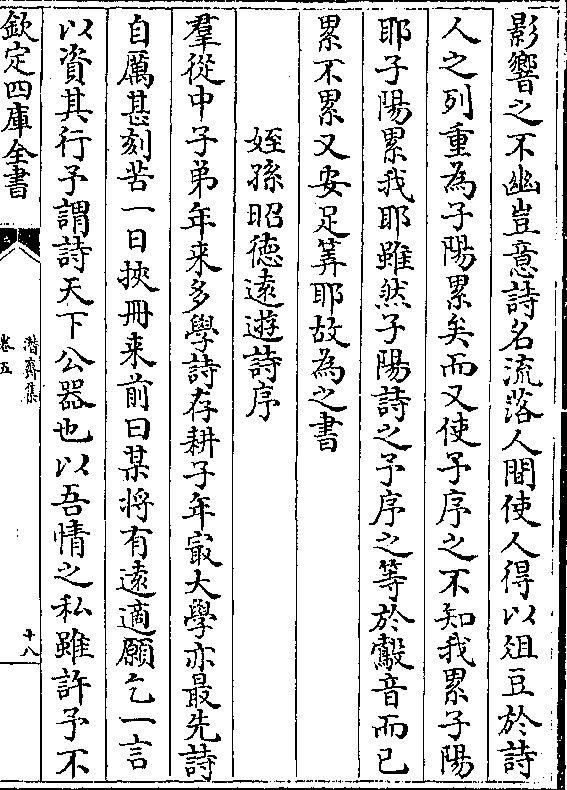 影響之不幽豈意詩名流落人間使人得以俎豆於詩
人之列重為子陽累矣而又使予序之不知我累子陽
耶子陽累我耶雖然子陽詩之予序之等於鷇音而已
累不累又安足筭耶故為之書
姪孫昭德遠遊詩序
羣從中子弟年来多學詩存耕子年㝡大學亦最先詩
自厲甚刻苦一日挾冊来前曰某将有遠適願乞一言
以資其行予謂詩天下公器也以吾情之私雖許予不
欽定四庫全書
潛齋集
卷五
十八